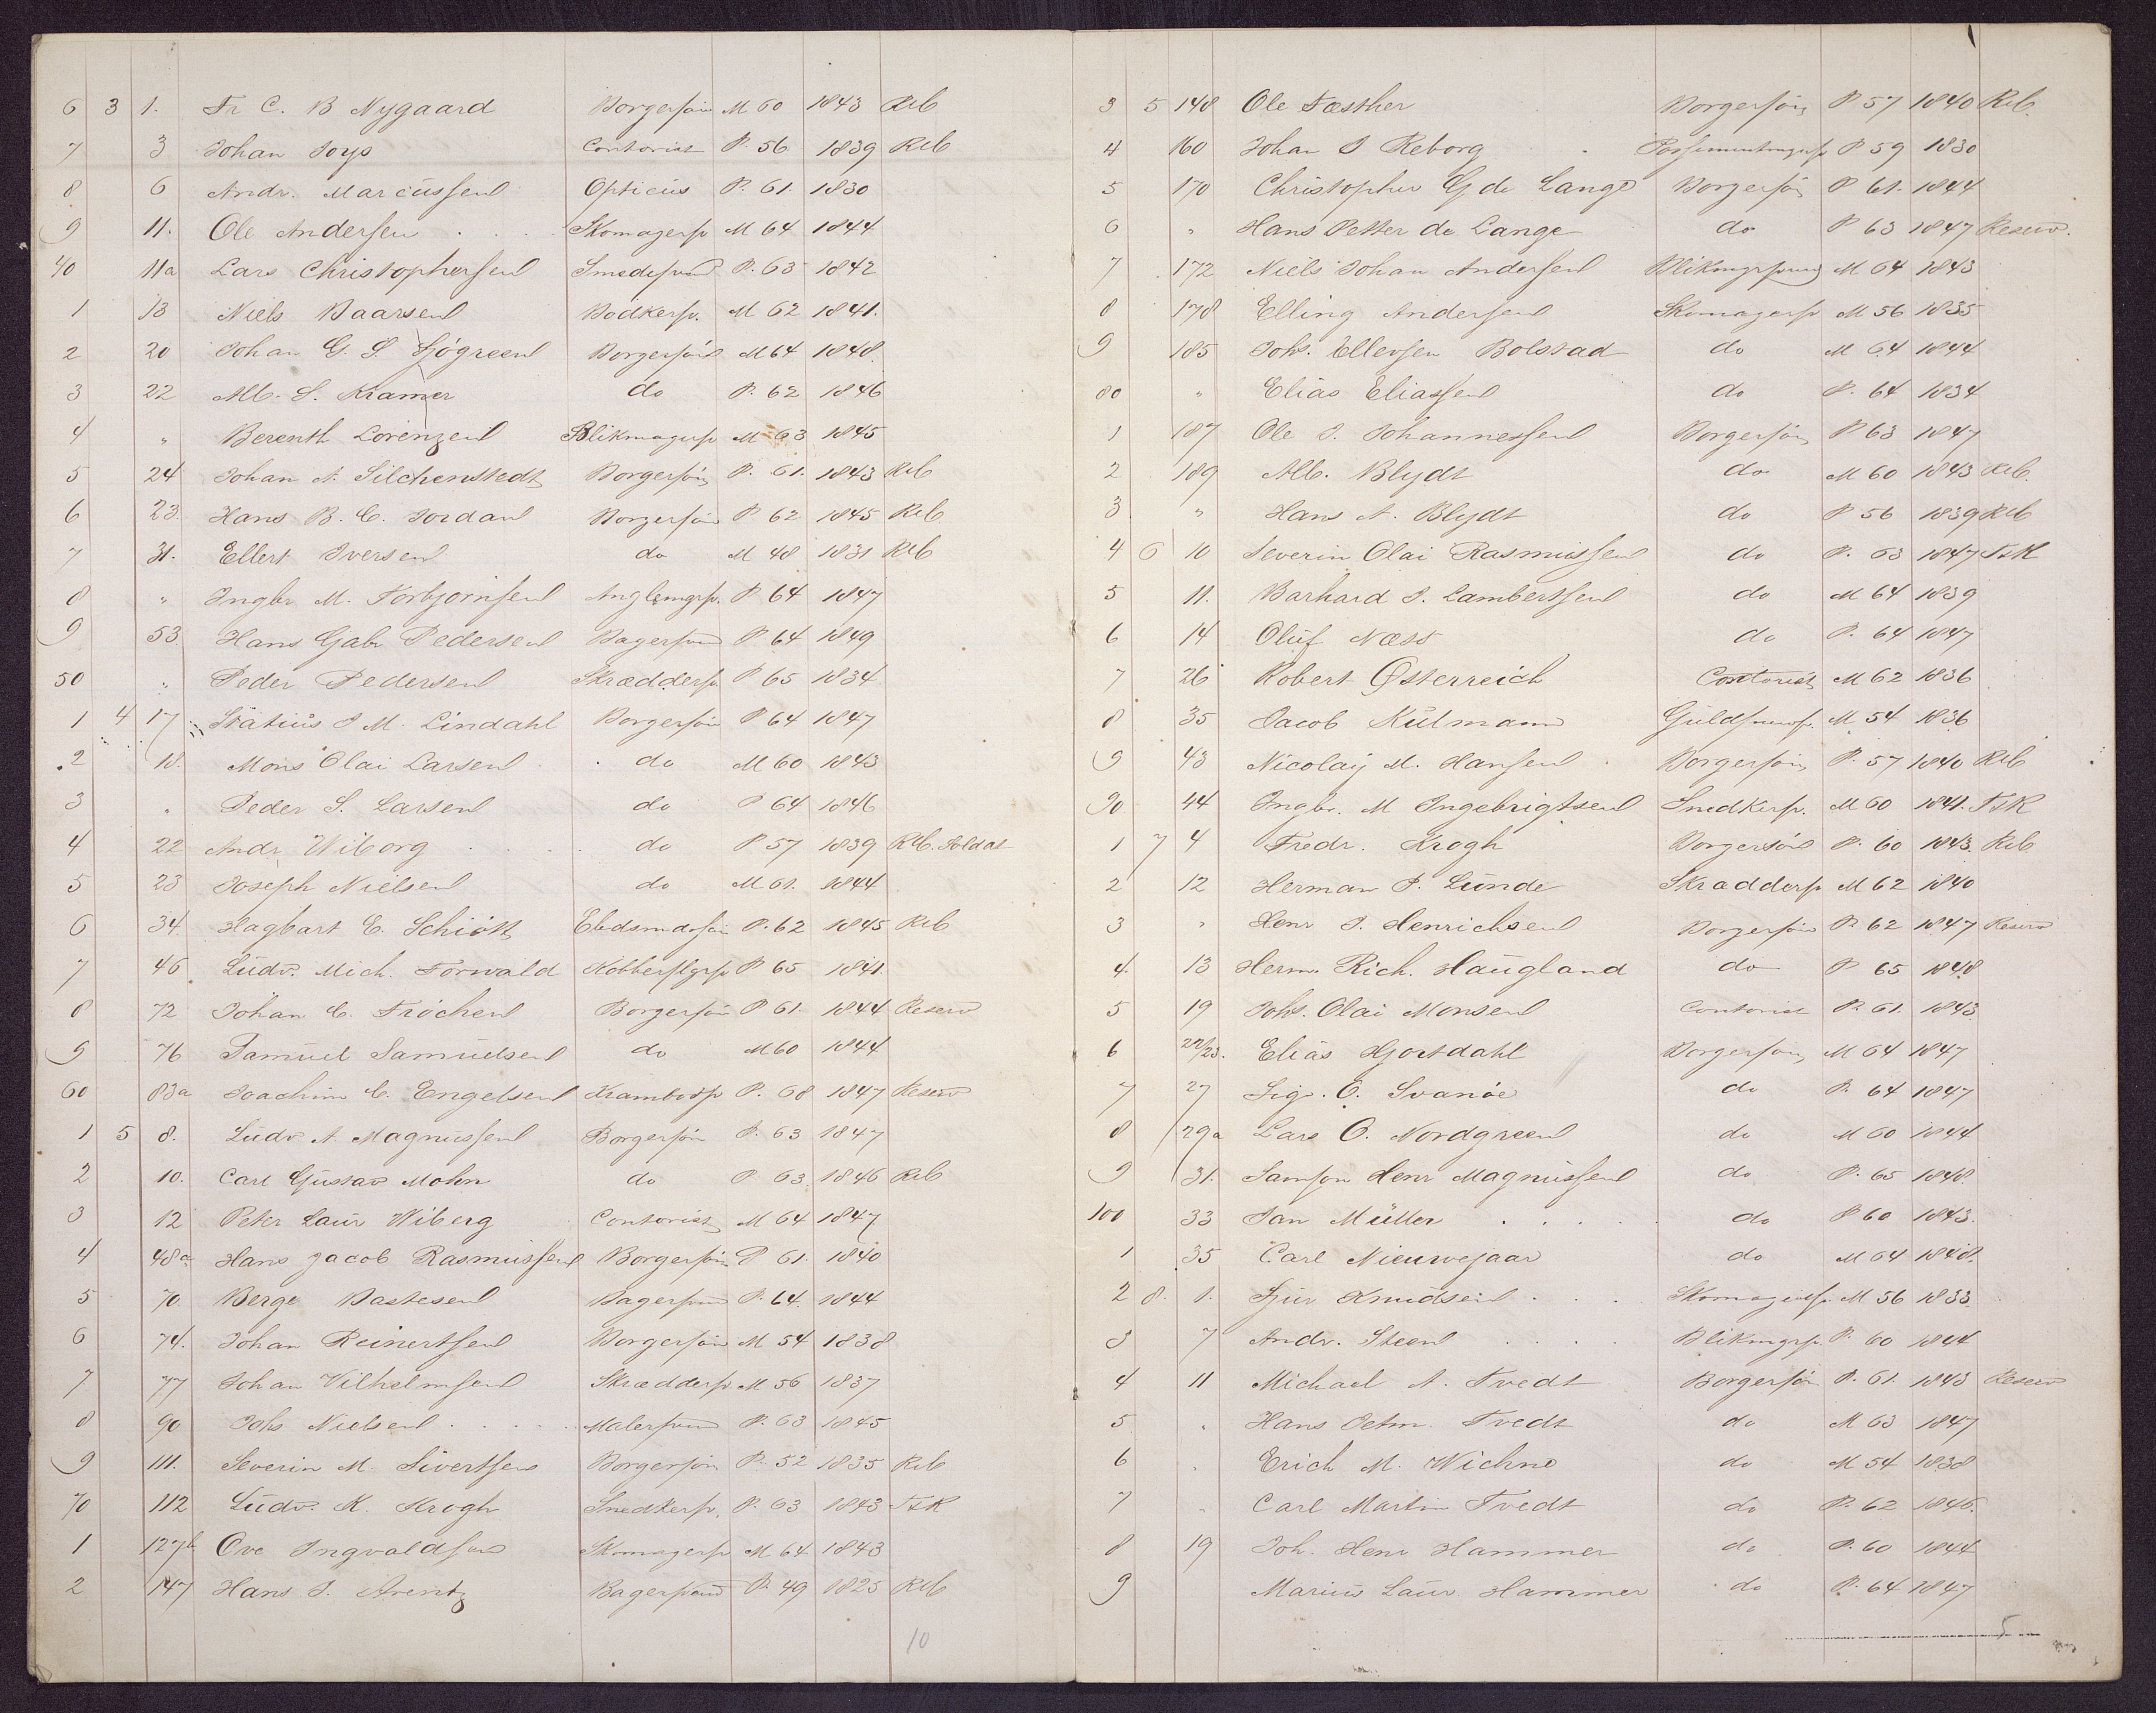 6 3 1. Fr C. B Nygaard Borgersön M 60 1843 Reb
7 3 Johan Joys Contorist P. 56 1839 Reb
8 6 Andr. Marcussen Opticus P. 61. 1830
9 11. Ole Andersen Skomagersv M 64 1844
40 11a Lars Christophersen Smedesvend P. 63 1842
1 13 Niels Baarsen Bødkersv. M 62 1841.
2 20 Johan G. S. Sjögreen Borgersön M 64 1848.
3 22 Alb. S. Kramer do P. 62 1846
4 " Berenth Lorenzen Blikmagersv M 63 1845
5 24 Johan A. Silchenstedt Borgersön P. 61. 1843 Reb
6 23. Hans B. C. Jordan Borgersön P 62 1845 Reb
7 31. Ellert Iversen do M 48 1831 Reb
8 " Ingbr M. Torbjornsen P 64 1847
9 53. Hans Gabr Pedersen Bagersvend P 64 1849
50 " Peder Pedersen Skræddersv P 65 1834
1 4 17 Statius J M. Lindahl Borgersön P 64 1847
2 18. Mons Olai Larsen do M 60 1843
3 " Peder S. Larsen do P 64 1846
4 22 Andr Wiborg do P 57 1839 Reb. Soldat
5 23 Joseph Nielsen do M 61. 1844
6 34 Hagbart E. Schiött P. 62 1845 Reb
7 46 Ludv. Mich. Torwald Kobberslgrsv P 65 1841.
8 72 Johan C. Fröchen Borgersön P 61. 1844 Reserv
9 76 Samuel Samuelsen do M 60 1844
60 83a Joachim C. Engelsen P. 68 1847 Reserv
1 5 8. Ludv A. Magnussen Borgersön P. 63 1847
2 10. Carl Gustav Mohn do P 63 1846 Reb
3 12 Peter Laur Wiberg Contorist M 64 1847
4 48a Hans Jacob Rasmussen Borgersön P 61. 1840
5 70 Berge Bastesen Bagersvend P. 64. 1844
6 74. Johan Reinertsen Borgersön M 54 1838
7 77 Johan Vilhelmsen Skræddersv M 56 1837
8 90 Johs Nielsen Malersvend P. 63 1845
9 111. Severin M. Sivertsen Borgersön P. 52 1835 Reb
70 112 Ludv. K. Krogh Snedkersv. P. 63 1843 TsK
1 127b Ove Ingvaldsen Skomagersv M 64 1843
2 147 Hans J. Arentz Bagersvend P. 49 1825 Reb
10
3 5 148 Ole Fæsther Borgersön P 57 1840 Reb.
4 160 Johan J Reborg P 59 1830
5 170 Christopher G de Lange Borgersön P 61. 1844
6 " Hans Petter de Lange do P 63 1847 Reserv.
7 172 Niels Johan Andersen Blikmgrsvend M 64 1843
8 178 Elling Andersen Skomagersv M 56 1835
9 185 Johs. Ellevsen Bolstad do M 64 1844
80 " Elias Eliassen do P. 64 1834
1 187 Ole J. Johannessen Borgersön P 63 1847
2 189 Alb. Blydt do M 60 1843 Reb.
3 " Hans A. Blydt do P 56 1839 Reb
4 6 10 Severin Olai Rasmussen do P. 63 1847 TsK
5 11. Barhard J. Lambertsen do M 64 1839
6 14 Oluf Næss do P. 64 1847
7 26 Robert Østerreich Contorist M 62 1836
8 35 Jacob Kulmann Guldsmedsv. M. 54 1836
9 43 Nicolay M. Hansen Borgersön P. 57 1840 Reb
90 44 Ingbr. M Ingebrigtsen Snedkersv. M 60 1841. TsK
1 7 4 Fredr. Krogh Borgersön P. 60 1843. Reb
2 12 Herman P. Lunde Skræddersv M 62 1840
3 " Henr J. Henrichsen Borgersön P. 62 1847 Reserv
4. 13 Herm. Rich. Haugland do P 65 1848
5 19 Johs. Olai Monsen Contorist P. 61. 1843
6 22/23. Elias Hjortdahl Borgersön M 64 1847
7 27 Sigv. O. Svanöe do P. 64 1847
8 29a Lars O. Nordgreen do M 60 1844
9 31. Samson Henr Magnussen do P. 65 1848.
100 33 Jan Müller do P 60 1843.
1 35 Carl Nieuwejaar do M 64 1848.
2 8. 1. Sjur Knudsen Skomagersv. M 56 1833
3 7 Andr. Steen Blikmgrsv. P. 60 1844
4 11 Michael A. Tvedt Borgersön P. 61. 1843 Reserv
5 " Hans Oetm. Tvedt do M 63 1847
6 " Erich M. Wichne do M 54 1838
7 " Carl Martin Tvedt do P. 62 1845.
8 19 Joh. Henr Hammer do P. 60 1844
9 Marius Laur. Hammer do P. 64 1847
5